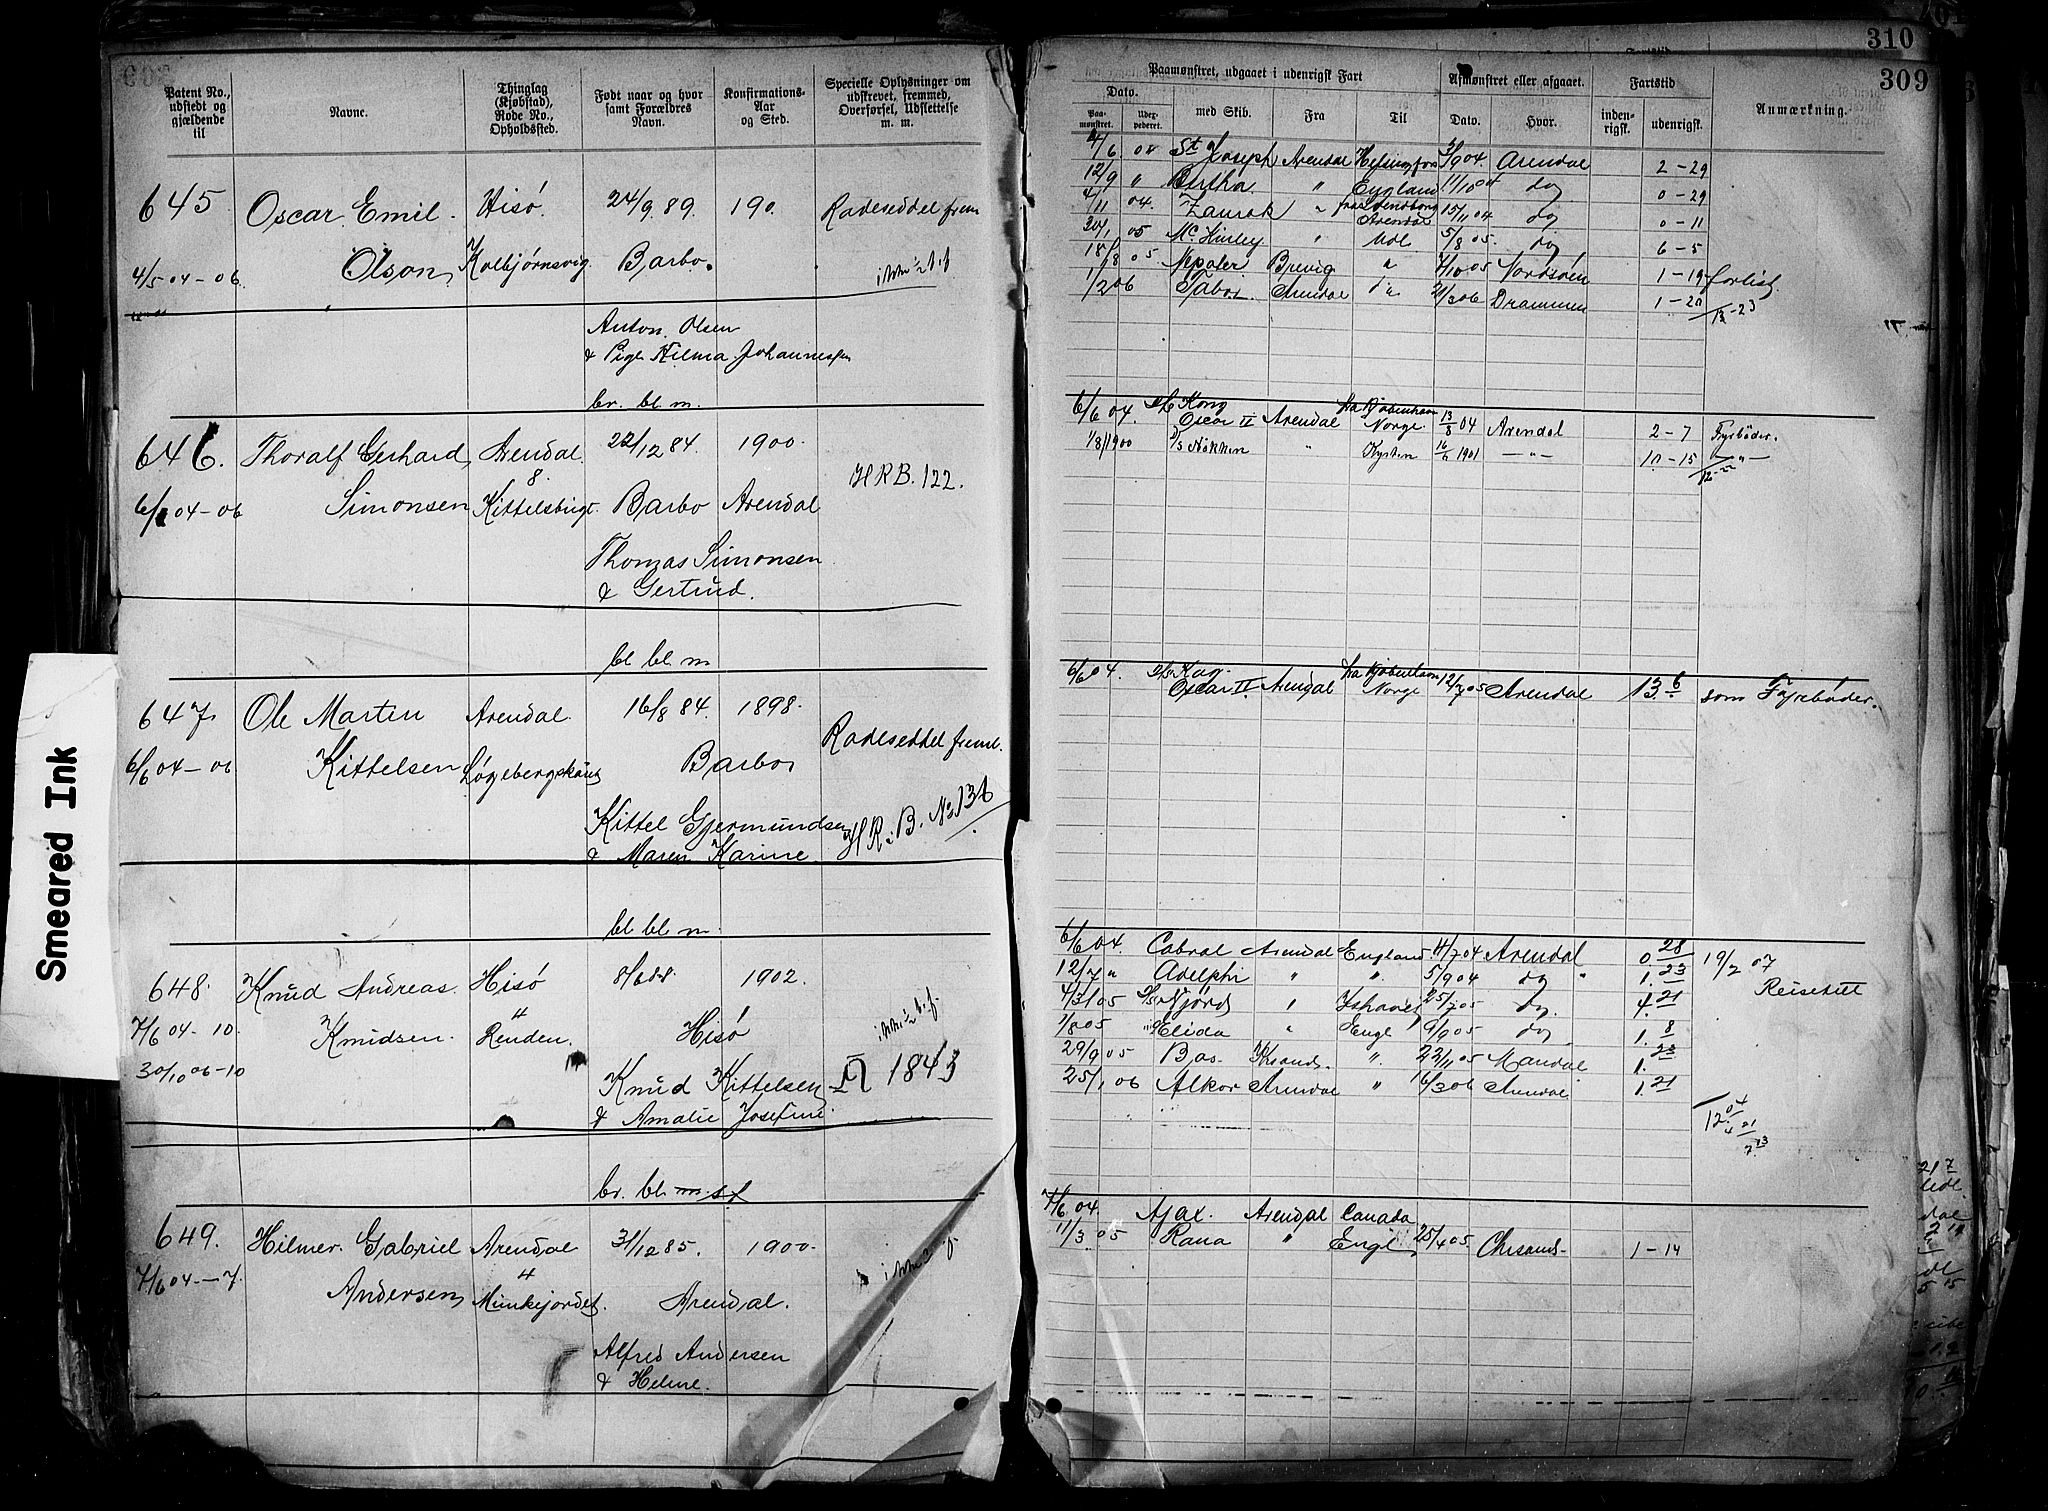 310
309
Smeared Ink
Patent No., udstedt og gjældende til
Navne.
Thinglag (Kjøbstad), Rode No., Opholdssted.
Født naar og hvor samt Forældres Navn.
Konfirmations-Aar og Sted.
Specielle Oplysninger om udskrevet, fremmed, Overførsel, Udslettelse m. m.
645. Oscar Emil Hisö. 24/9 89. 190. Rodeseddel frem
4/5 04-06 Olsen, Kolbjørnsvig. Barbo.
Anton Olsen
& Pige Hilma Johannessen
br. bl. m.
646. Thoralf Gerhard Arendal 22/12 84 1900.
8. HRB. 122.
6/6 04-06 Simonsen Kittelsbugt. Barbo Arendal
Thomas Simonsen
& Gertrud.
bl bl m
647. Ole Martin Arendal. 16/8 84. 1898.
Rodeseddel freml.
6/6 04-06 Kittelsen Barbo
Kittel Gjermundsen HR: B. No 136
& Maren Karine
bl bl m.
648. Knud Andreas. Hisö 8/6 88 1902.
4
7/6 04-10. Knudsen. Renden. Hisö
30/10 06-10 Knud Kittelsen 1843
& Amalie Josefine
br. bl. m
649. Hilmer Gabriel Arendal 31/12 85. 1900.
4
7/6 04-7. Andersen, Munkejordet. Arendal.
Alfred Andersen
& Helene.
Paamønstret, udgaaet i udenrigsk Fart
Afmønstret eller afgaaet.
Fartstid
Dato.
Paamønstret. Udexpederet. med Skib. Fra Til Dato. Hvor. indenrigsk. udenrigsk. Anmærkning.
4/6 St Joseph Arendal Helsingfors 3/9 04. Arendal 2-29
12/9 " Bertha " England 11/10 04 do 0-29
4/11 04. " Arendal 15/11 04 do 0-11
30/1 05 Mc Kinley " Udl 5/8 05. do 6-5
18/8 05 Brevig " Nordsøen 1-19 forlist.
1/2 06 Tabor. Arendal 21/3 06 Drammen 1-20
13-23
6/6 04. Kong Oscar II Arendal fra Kjøbenhavn Norge. 13/8 04 Arendal 2-7 Fyrbøder.
1/8 1900 D/S Nøkken " Kysten 1901 -"- 10-15 -"-
12-22
6/6 04. D/S Kong Oscar II Arendal fra Kjøbenhavn Norge 12/7 05 Arendal 13.6 som Fyrbøder.
6/6 04. Cabral Arendal England 4/7 04 Arendal 0.28 19/2 07
12/7 " Adelphi " " 5/9 04 do " 1.23 Reisetill
4/3 05 Njörd " Ishavet 25/7 05 do. 4.21
1/8 05 Elida " Engl 9/9 05 do 1.8
29/9 05 Bas Krsand. " 22/11 05 Mandal 1.23
25/1 06 Alkor Arendal " 16/3 06 Arendal 1.21
7/6 04. Ajax. Arendal Canada
11/3 05 Rana " Engl 25/4 05. Chrsand- 1-14